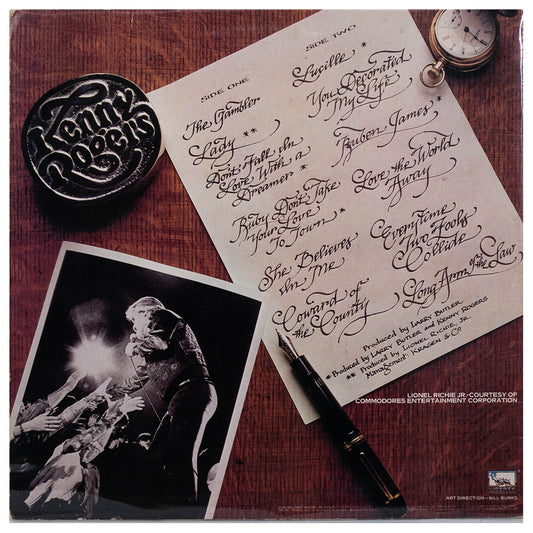 Kenny
Rogers
SIDE ONE
The Gambler
Lady **
Don't Fall In
Love With a
Dreamer *
Ruby Don't Take
Your Love
To Town *
She Believes
In Me
Coward of
the County
SIDE TWO
Lucille *
You Decorated
My Life
Reuben James *
Love the World
Away
Everytime
Two Fools
Collide
Long Arm of the Law
Produced by LARRY BUTLER
* Produced by LARRY BUTLER and KENNY ROGERS
** Produced by LIONEL RICHIE, JR.
Management: KRAGEN & CO.
LIONEL RICHIE JR.-COURTESY OF
COMMODORES ENTERTAINMENT CORPORATION
LIBERTY
ART DIRECTION-BILL BURKS